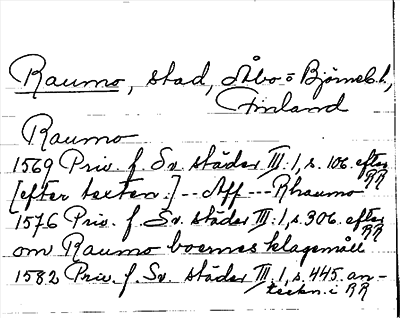 Raumo, stad, Åbo = Björneb.l.,
Finland
Raumo
1569 Priv. f. Sv. städer III:1, s. 106. efter RR
[efter texten:] -- Aff --- Rhaumo
1576 Priv. f. Sv. städer III:1, s. 306. efter RR
om Raumo boernes klagemåll
1582 Priv. f. Sv. städer III:1, s. 445. an-
teckn. i RR